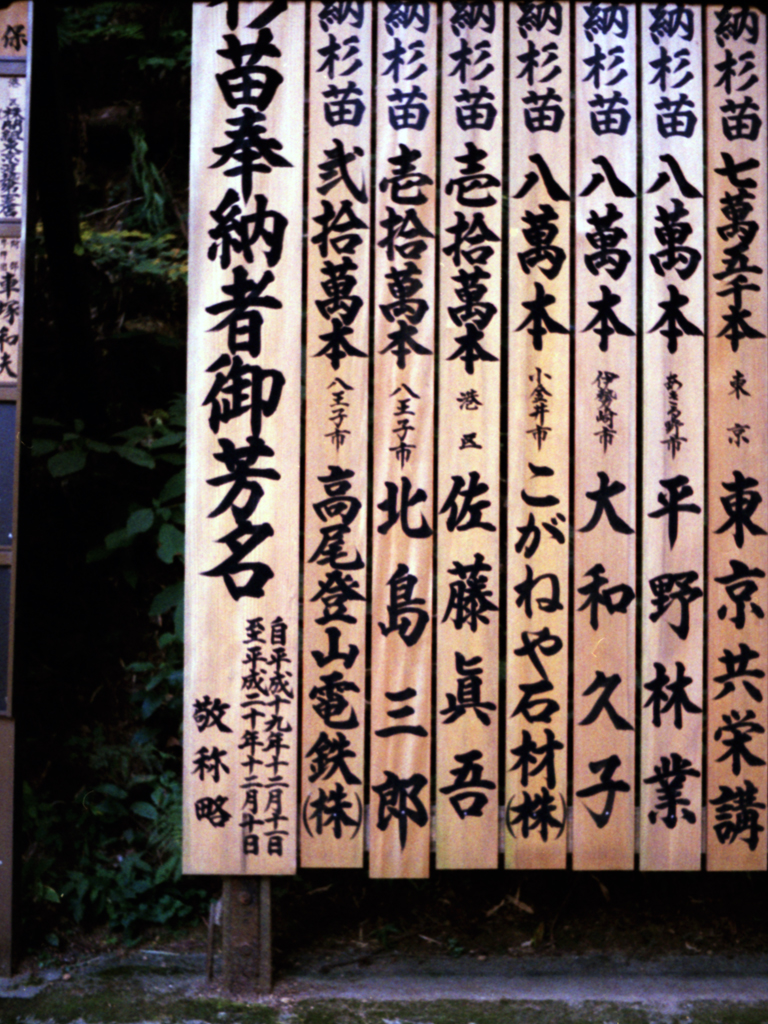 杉苗奉納者御芳名
自平成十九年十二月十一日
至平成二十年十二月十日
敬称略
納杉苗 弐拾萬本 八王子市 高尾登山電鉄(株)
納杉苗 壱拾萬本 八王子市 北島三郎
納杉苗 壱拾萬本 港区 佐藤眞吾
納杉苗 八萬本 小金井市 こがねや石材(株)
納杉苗 八萬本 伊勢崎市 大和久子
納杉苗 八萬本 あきる野市 平野林業
納杉苗 七萬五千本 東京 東京共栄講
保
車塚和夫